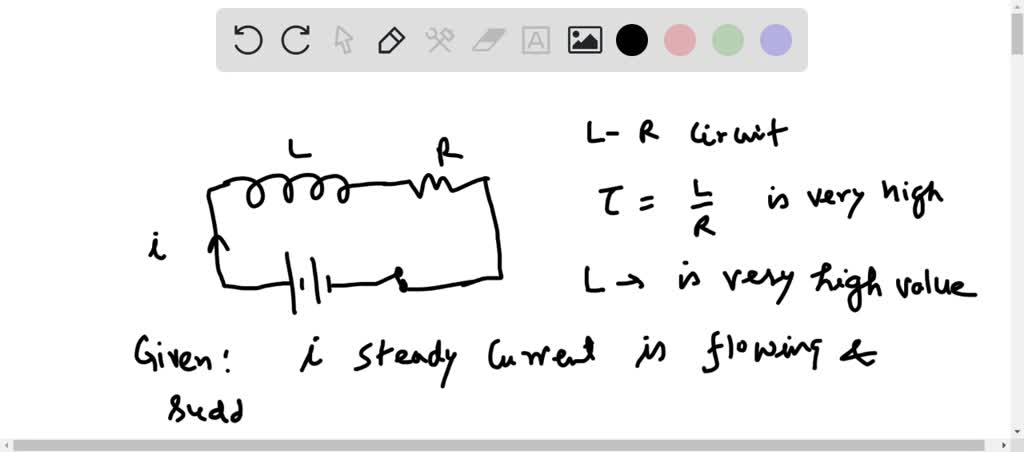 L R
i
L- R Circuit
τ = L/R is very high
L → is very high value
Given: i steady current is flowing &
sudd